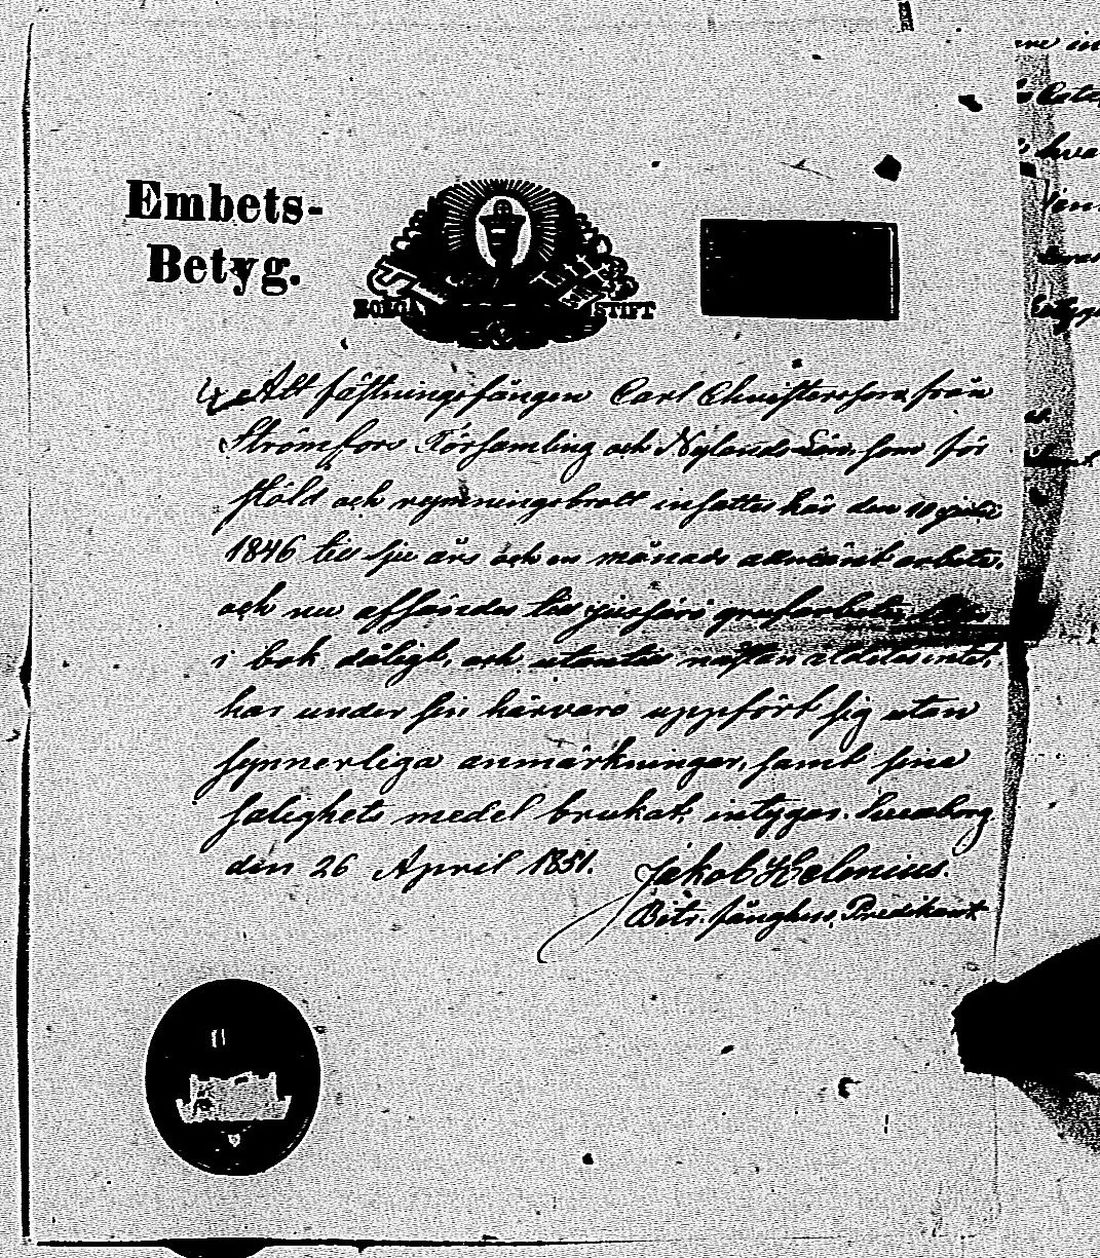 Embets-
Betyg.
BORGÅ STIFT
Att fästningsfången Carl Christersson från
Strömfors Församling och Nylands Län, som för
stöld och rymningsbrott insattes här den 10
1846 till sju års och en månads allmänt arbete,
och nu affändes till
i bok dåligt, och utantill nästan aldeles intet,
har under sin härvaro uppfört sig utan
synnerliga anmärkningar, samt sina
salighets medel brukat, intygar. Sveaborg
den 26 April 1851. Jakob Helenius.
Bitr. fånghus Predikant